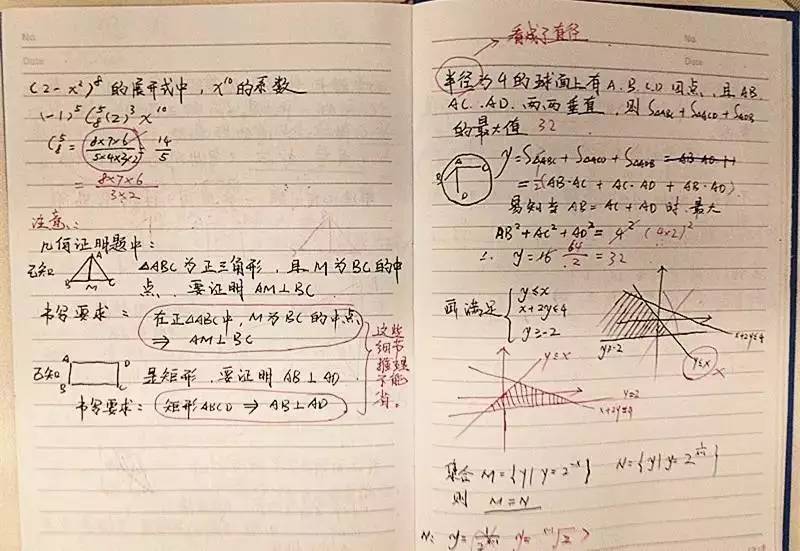 No.
Date
(2-x²)⁸ 的展开式中，x¹⁰的系数
(-1)⁵ C₈⁵(2)³ x¹⁰
C₈⁵ = 8×7×6 / 5×4×3×2 14/5
= 8×7×6 / 3×2
注意：
几何证明题中：
已知 A B M C △ABC 为正三角形，且 M 为 BC 的中
点，要证明 AM⊥BC
书写要求： 在正△ABC中，M为BC的中点
⇒ AM⊥BC
这些细节推理不能省。
已知 A D B C 是矩形，要证明 AB⊥AD
书写要求： 矩形ABCD ⇒ AB⊥AD
看成了直径
No.
Date
半径为4的球面上有A.B.C.D四点，且AB.
AC.AD.两两垂直，则 S△ABC + S△ACD + S△ADB
的最大值 32
A B C D y=S△ABC + S△ACD + S△ADB
=½(AB·AC + AC·AD + AB·AD)
易知当 AB = AC + AD 时 最大
AB²+AC²+AD²= 4² (4×2)²
∴ y=16 64/2 = 32
画满足 { y≤x
x+2y≤4
y≥-2
x+2y≤4
y≥-2
y≤x
x
y≤x
y=2
x+2y≤4
集合 M={y|y=2⁻ˣ}
则 M=N